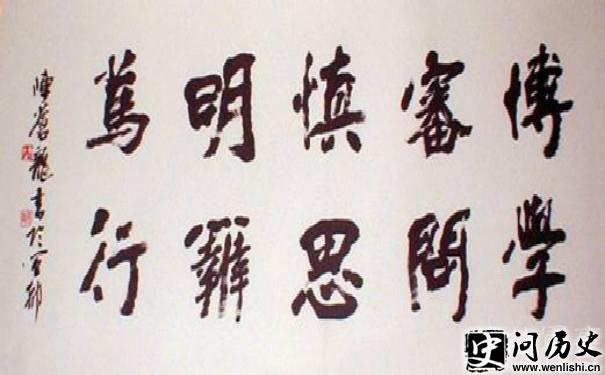 博學
審問
慎思
明辨
篤行
龍書於
问历史
www.wenlishi.cn